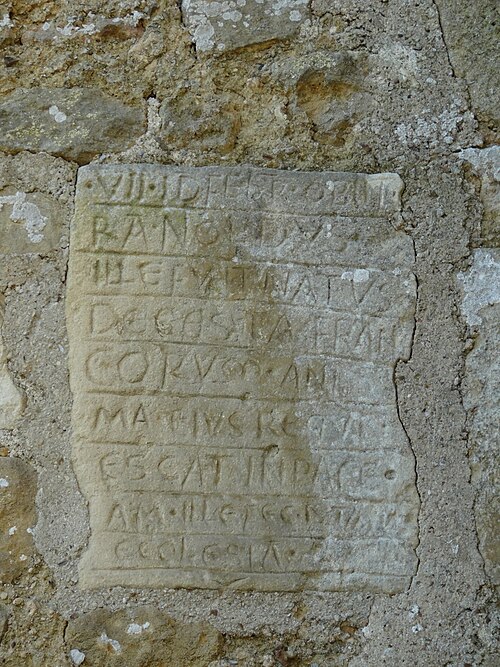 · VII · ID FEBR · OBIIT
RANOLDVS ·
ILLE FVIT NATVS
DE GESTA FRAN
CORVM · ANI
MA EIVS REQVI
ESCAT IN PACE ·
AM · ILLE FECIT
ECCLESIA ·